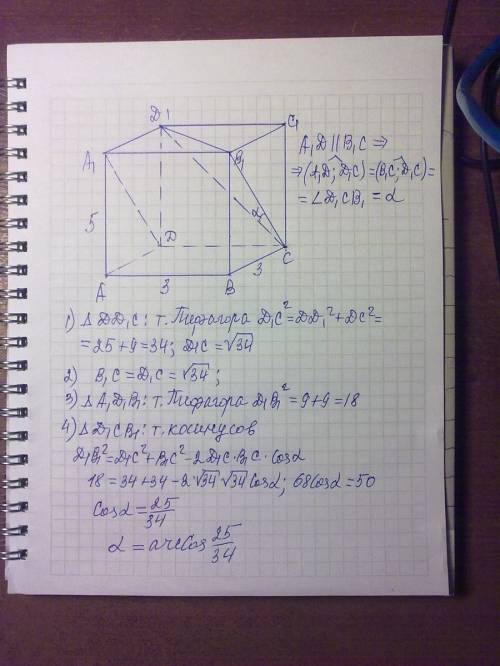 D1
C1
A1
B1
5
α
D
C
3
A
3
B
A₁D || B₁C ⇒
⇒ (A₁D; D₁C) = (B₁C; D₁C) =
= ∠D₁CB₁ = α
1) Δ DD₁C: т. Пифагора D₁C² = DD₁² + DC² =
= 25 + 9 = 34; D₁C = √34
2) B₁C = D₁C = √34;
3) Δ A₁D₁B₁: т. Пифагора D₁B₁² = 9 + 9 = 18
4) Δ D₁CB₁: т. косинусов
D₁B₁² = D₁C² + B₁C² - 2D₁C·B₁C·cosα
18 = 34 + 34 - 2√34 √34 cosα; 68cosα = 50
cosα = 25/34
α = arccos 25/34